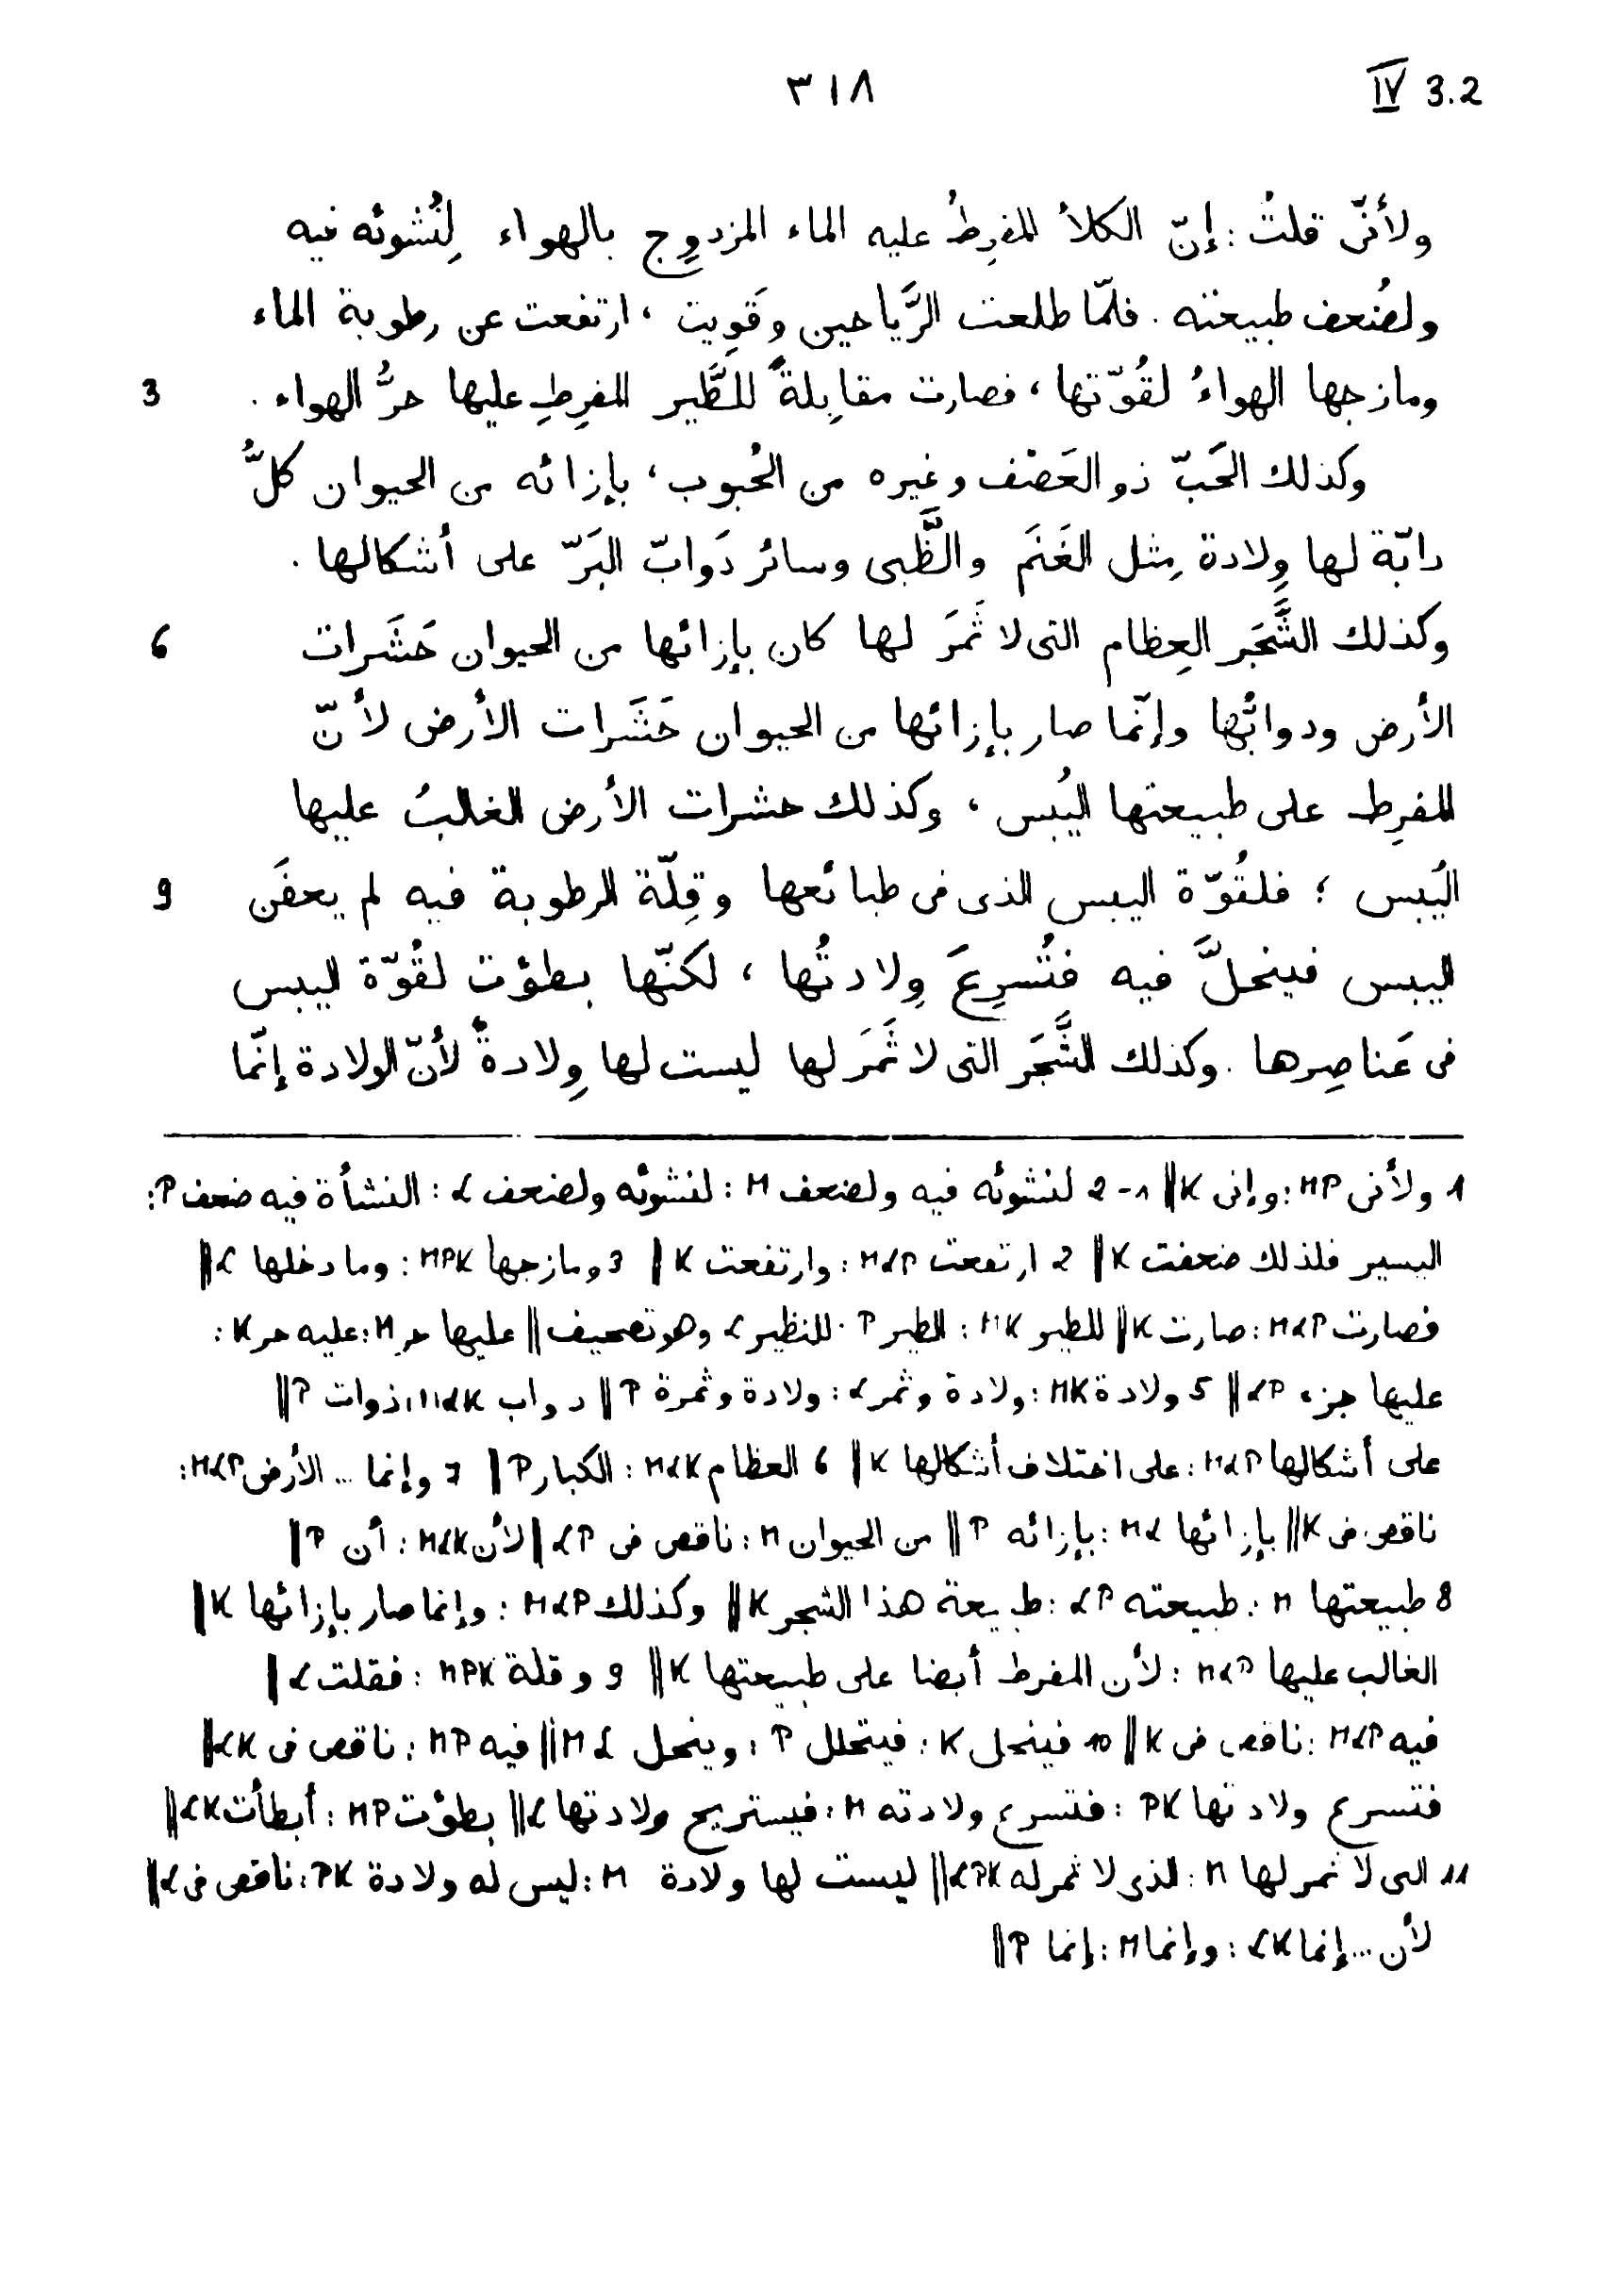 ٣١٨ IV 3.2
ولأنّى قلتُ : إنّ الكلأ المفرِطُ عليه الماء المزدوِج بالهواء لِنُشوئه فيه
ولضُعف طبيعته . فلمّا طلعت الرَّياحين وقَوِيت ، ارتفعت عن رطوبة الماء
3 ومازجها الهواءُ لقُوّتها ، فصارت مقابِلةً للطَّير المفرِطِ عليها حرُّ الهواء .
وكذلك الحَبّ ذو العَصْف وغيره من الحُبوب ، بإزائه من الحيوان كلُّ
دابّة لها وِلادة مِثل الغَنَم والظَّبى وسائر دَوابّ البَرّ على أشكالها .
6 وكذلك الشَّجَر العِظام التى لا ثَمَرَ لها كان بإزائها من الحيوان حَشَرات
الأرض ودوابُّها وإنّما صار بإزائها من الحيوان حَشَرات الأرض لأنّ
المفرِط على طبيعتها اليُبس ، وكذلك حشرات الأرض الغالبُ عليها
9 اليُبس ؛ فلقُوّة اليبس الذى فى طبائعها وقِلّة الرطوبة فيه لم يعفَن
اليبس فينحلَّ فيه فتُسرِعَ وِلادتُها ، لكنّها بطؤت لقُوّة اليبس
فى عَناصِرها . وكذلك الشَّجَر التى لا ثَمَرَ لها ليست لها وِلادةٌ لأنّ الولادة إنّما
1 ولأنى MP : وإنى K || 1-2 لنشوئه فيه ولضعف M : لنشوئه ولضعف L : النشأة فيه ضعف P :
اليسير فلذلك ضعفت K || 2 ارتفعت MLP : وارتفعت K || 3 ومازجها MPK : وما دخلها L ||
فصارت MLP : صارت K || للطير MK : الطير P . للنظير L وهو تصحيف || عليها حر M : عليه حر K :
عليها جزء LP || 5 ولادة MK : ولادة وثمر L : ولادة وثمرة P || دواب MLK : ذوات P ||
على أشكالها MLP : على اختلاف أشكالها K || 6 العظام MLK : الكبار P || 7 وإنما ... الأرض MLP :
ناقص فى K || بإزائها ML : بإزائه P || من الحيوان M : ناقص فى LP || لأن MLK : أن P ||
8 طبيعتها M : طبيعته LP : طبيعة هذا الشجر K || وكذلك MLP : وإنما صار بإزائها K ||
الغالب عليها MLP : لأن المفرط أيضا على طبيعتها K || 9 وقلة MPK : فقلت L ||
فيه MLP : ناقص فى K || 10 فينحل K : فيتحلل P : وينحل ML || فيه MP : ناقص فى LK ||
فتسرع ولادتها PK : فتسرع ولادته M : فيستريح ولادتها L || بطؤت MP : أبطأت LK ||
11 التى لا ثمر لها M : الذى لا ثمر له LPK || ليست لها ولادة M : ليس له ولادة PK : ناقص فى L ||
لأن ... إنما LK : وإنما M : إنما P ||